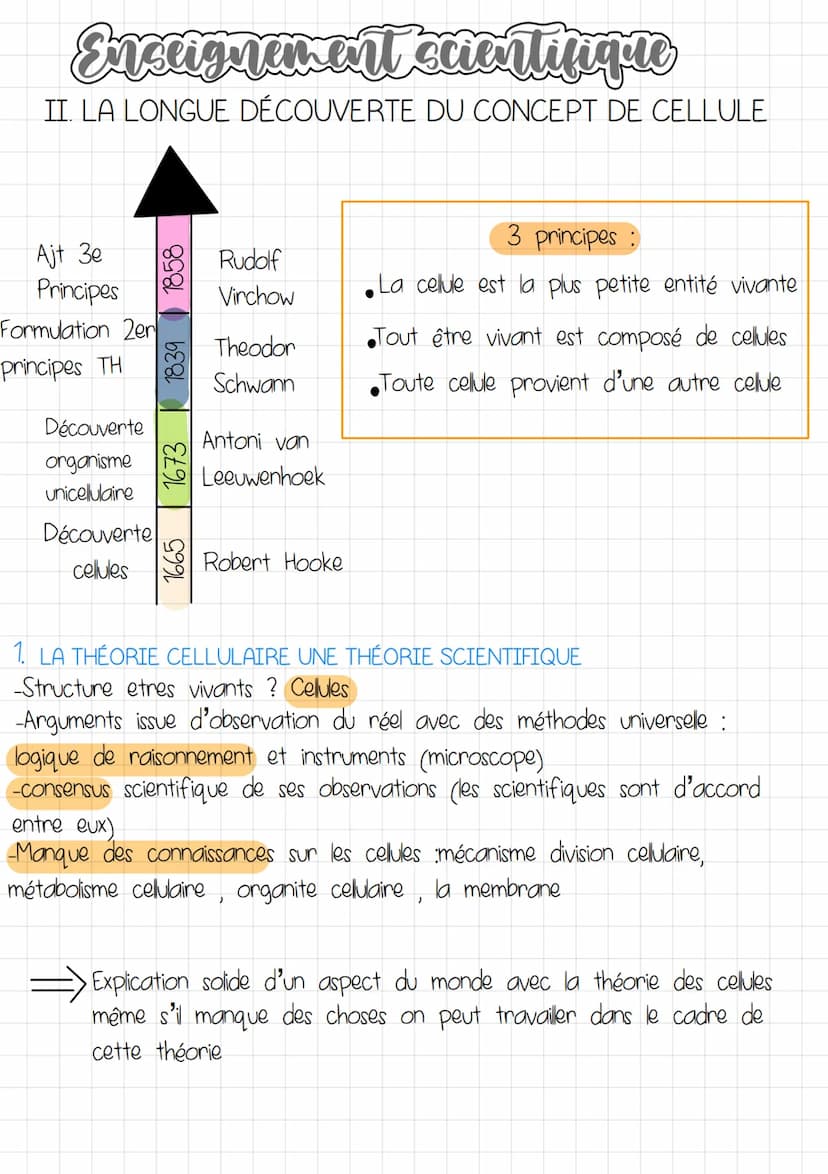 Enseignement scientifique
II. LA LONGUE DÉCOUVERTE DU CONCEPT DE CELLULE
Ajt 3e
Principes
1858
Rudolf
Virchow
Formulation 2er
principes TH
1839
Theodor
Schwann
Découverte
organisme
unicellulaire
1673
Antoni van
Leeuwenhoek
Découverte
cellules
1665
Robert Hooke
3 principes :
•La cellule est la plus petite entité vivante
•Tout être vivant est composé de cellules
•Toute cellule provient d'une autre cellule
1. LA THÉORIE CELLULAIRE UNE THÉORIE SCIENTIFIQUE
-Structure etres vivants ? Cellules
-Arguments issue d'observation du réel avec des méthodes universelle :
logique de raisonnement et instruments (microscope)
-consensus scientifique de ses observations (les scientifiques sont d'accord
entre eux)
-Manque des connaissances sur les cellules :mécanisme division cellulaire,
métabolisme cellulaire , organite cellulaire , la membrane
⇒ Explication solide d'un aspect du monde avec la théorie des cellules
même s'il manque des choses on peut travailler dans le cadre de
cette théorie